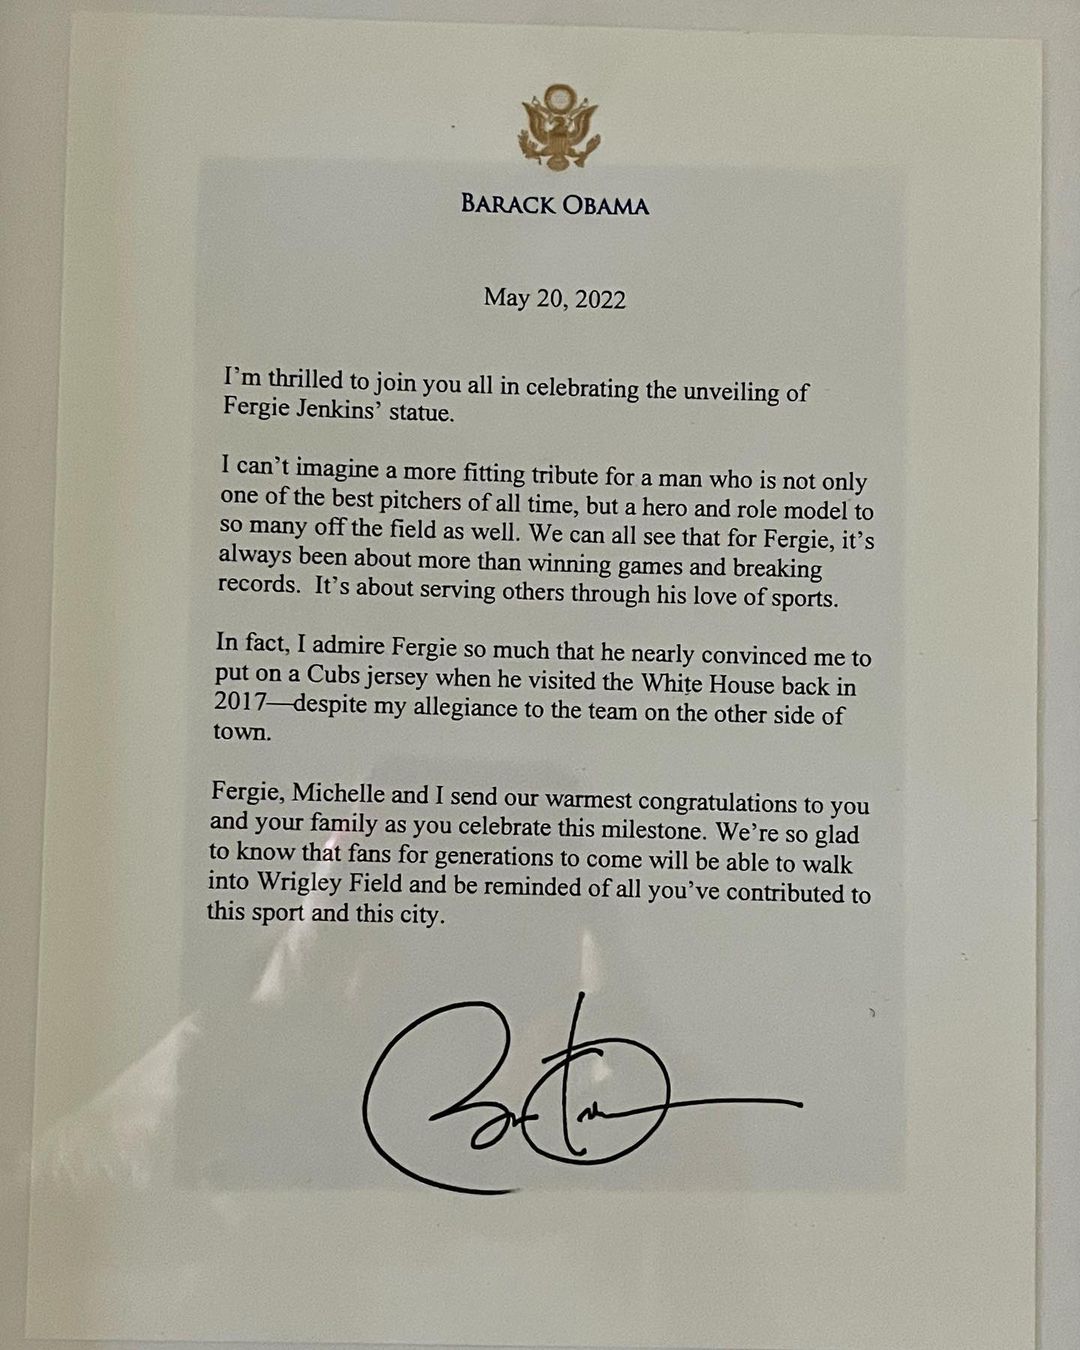 BARACK OBAMA
May 20, 2022
I'm thrilled to join you all in celebrating the unveiling of
Fergie Jenkins' statue.
I can't imagine a more fitting tribute for a man who is not only
one of the best pitchers of all time, but a hero and role model to
so many off the field as well. We can all see that for Fergie, it's
always been about more than winning games and breaking
records.  It's about serving others through his love of sports.
In fact, I admire Fergie so much that he nearly convinced me to
put on a Cubs jersey when he visited the White House back in
2017—despite my allegiance to the team on the other side of
town.
Fergie, Michelle and I send our warmest congratulations to you
and your family as you celebrate this milestone. We're so glad
to know that fans for generations to come will be able to walk
into Wrigley Field and be reminded of all you've contributed to
this sport and this city.